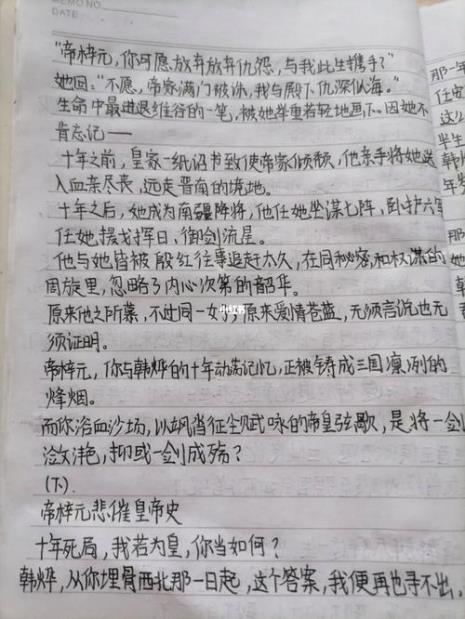 MEMO NO.
DATE
"帝梓元,你可愿放弃放弃仇怨,与我此生携手?"
她回:"不愿,帝家满门被诛,我与殿下仇深似海。"
生命中最进退维谷的一笔,被她举重若轻地画下。因她不
肯忘记——
十年之前,皇家一纸诏书致使帝家倾颓,他亲手将她送
入血亲尽丧,远走晋南的境地。
十年之后,她成为南疆阵将,他任她坐谋七阵,卧护六军
任她援戈挥日,御剑流星。
他与她皆被殷红往事追赶太久,在同秘密和权谋的
周旋里,忽略了内心次第的韶华。
原来他之所慕,不过同一女子;原来爱情苍蓝,无须言说也无
须证明。
帝梓元,你与韩烨的十年动荡记忆,正被铸成三国凛冽的
烽烟。
而你浴血沙场,以飒沓征尘赋咏的帝皇弦歌,是将一剑
潋滟,抑或一剑成殇?
(下).
帝梓元悲催皇帝史
十年死局,我若为皇,你当如何?
韩烨,从你埋骨西北那一日起,这个答案,我便再也寻不出,
那一年
任安
这么
半生
韩烨
年岁
那
她